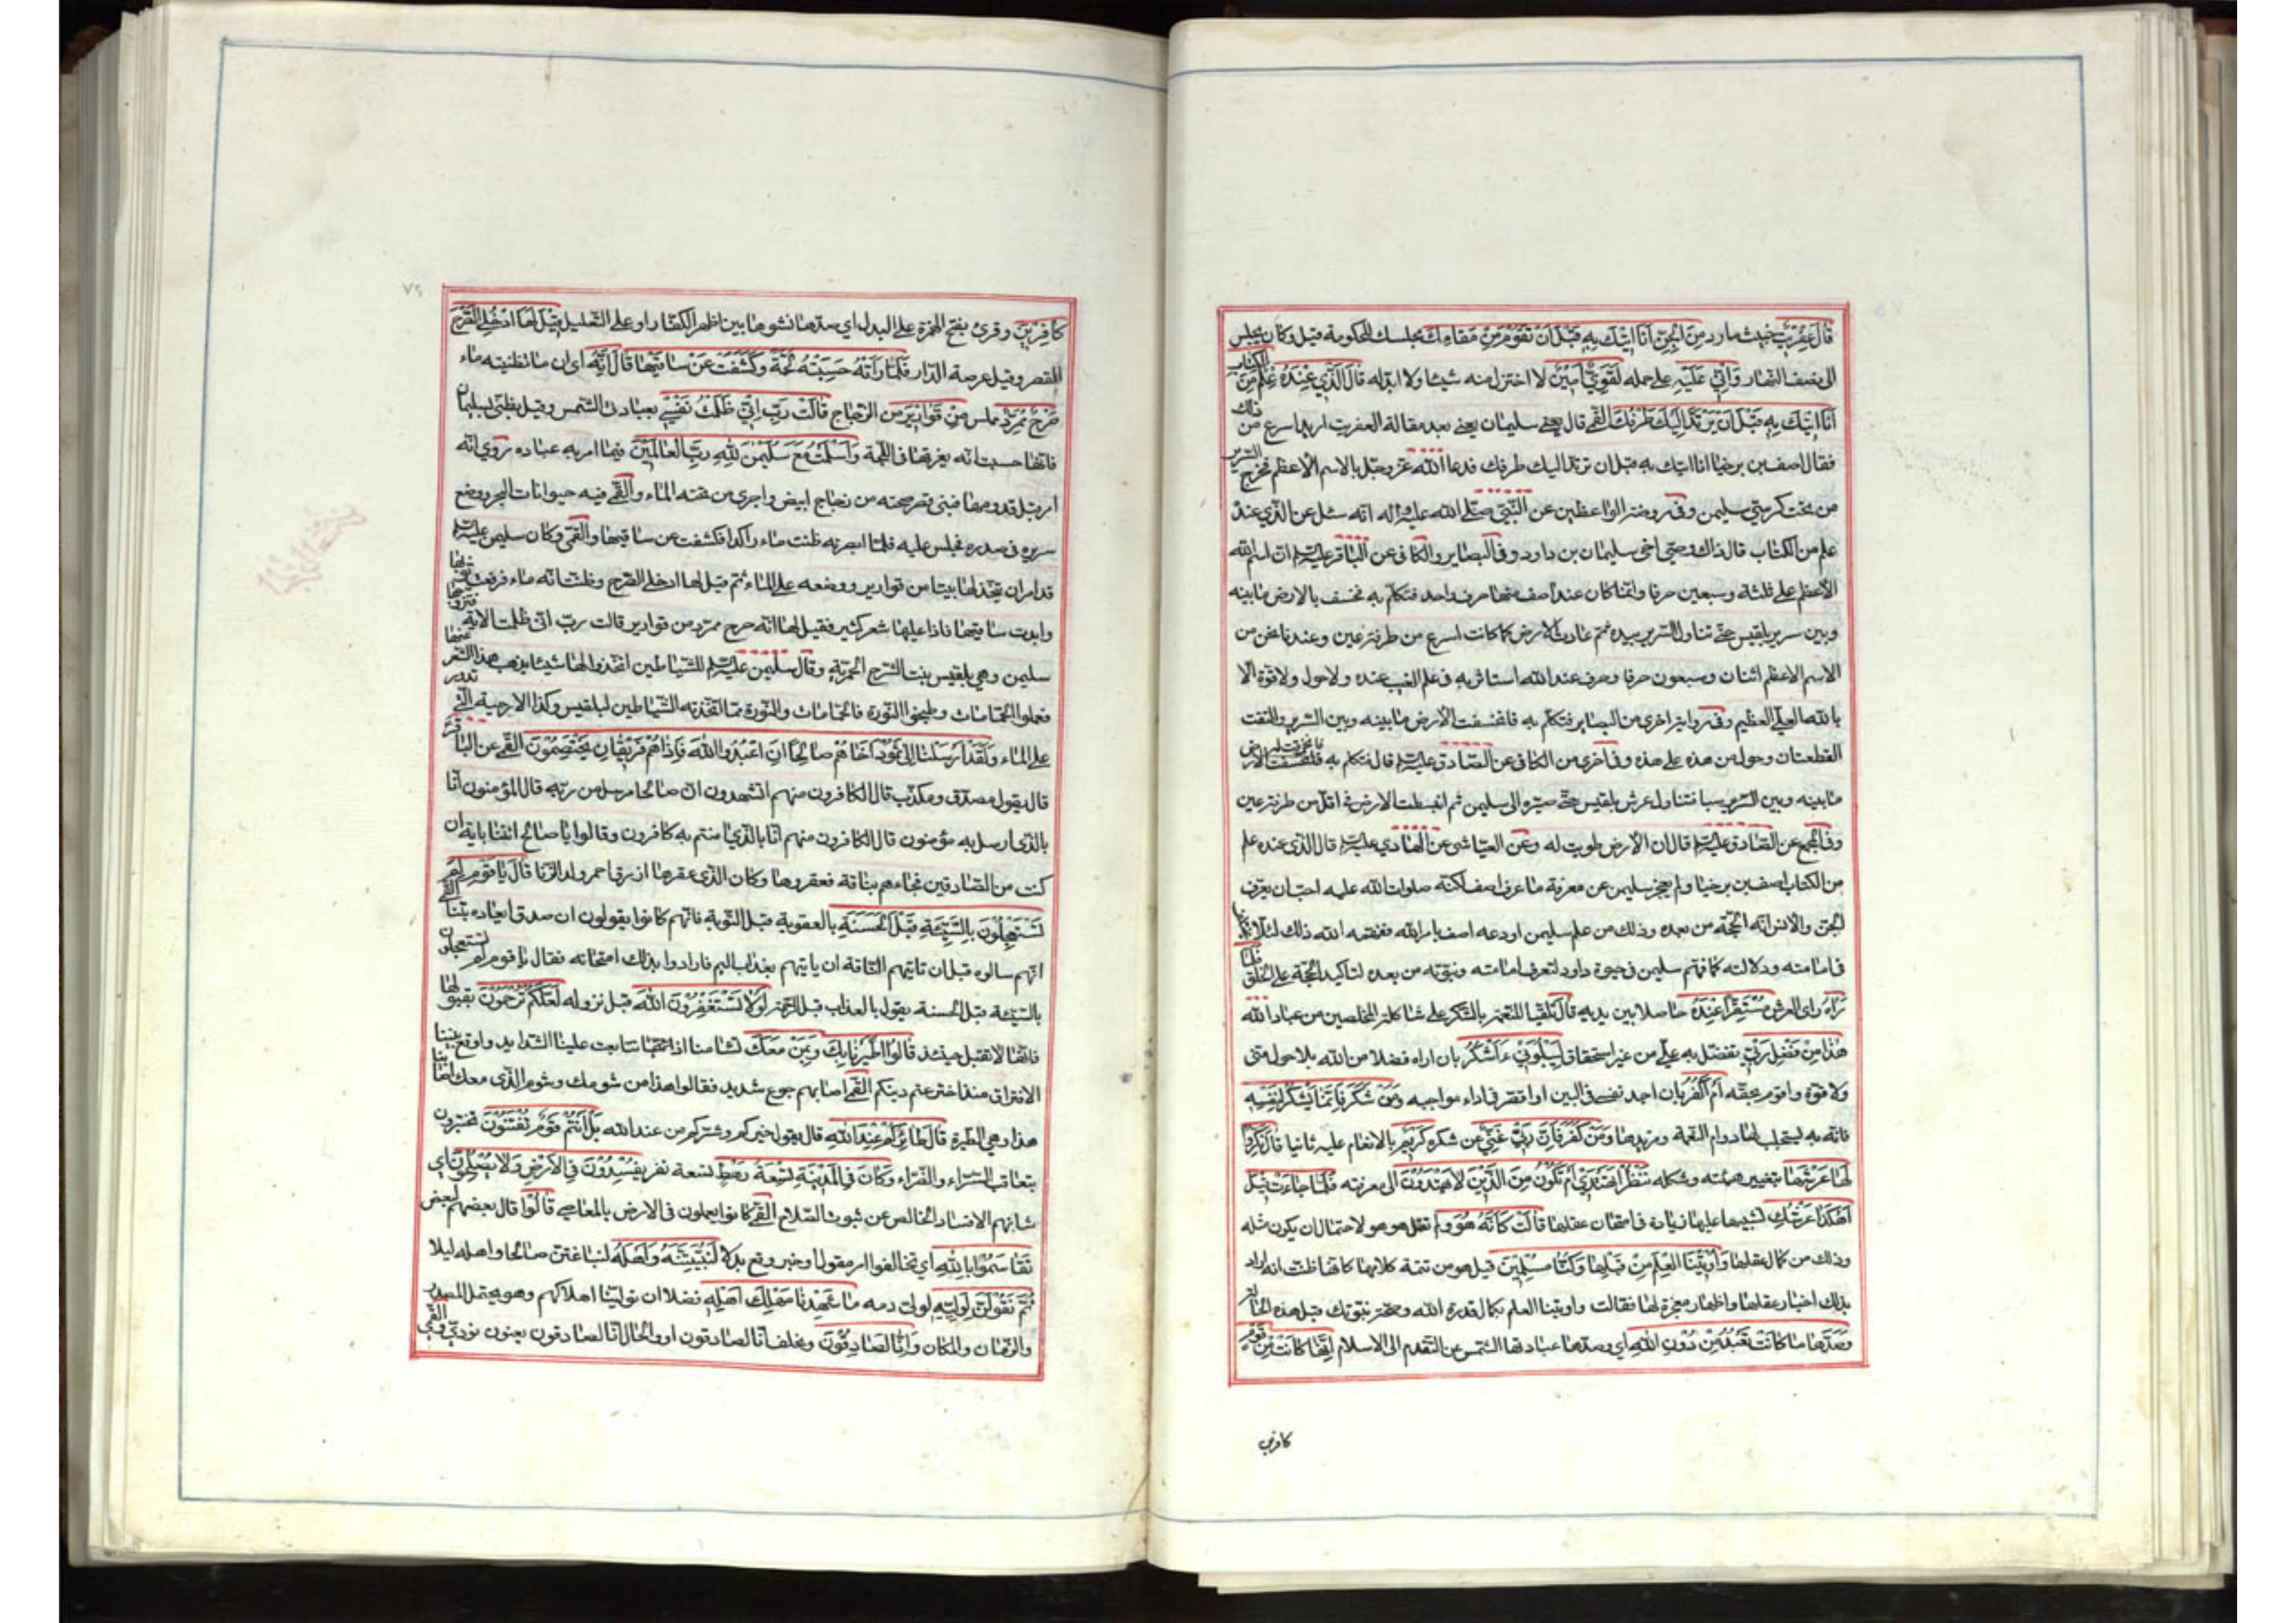 قَالَ عِفْرِيتٌ خبيث مارد مِنَ الْجِنِّ اَنَا اٰتِيكَ بِهِ قَبْلَ اَنْ تَقُومَ مِنْ مَقَامِكَ مجلسك للحكومة قيل وكان يجلس
الى نصف النهار وَاِنِّي عَلَيْهِ على حمله لَقَوِيٌّ اَمِينٌ لا اختزل منه شيئا ولا ابدله قَالَ الَّذِي عِنْدَهُ عِلْمٌ مِنَ الكتاب
اَنَا اٰتِيكَ بِهِ قَبْلَ اَنْ يَرْتَدَّ اِلَيْكَ طَرْفُكَ القمي قال يعني سليمان بعد مقالة العفريت اريد اسرع من ذلك
فقال اصف بن برخيا انا اتيك به قبل ان يرتد اليك طرفك فدعا الله عز وجل بالاسم الاعظم فخرج السرير
من تحت كرسي سليمن وفى روضة الواعظين عن النبي صلى الله عليه واله انه سئل عن الذي عنده
علم من الكتاب قال ذاك وصي اخي سليمان بن داود وفى البصاير والكافى عن الباقر عليه السلم ان اسم الله
الاعظم على ثلثة وسبعين حرفا وانما كان عند اصف منها حرف واحد فتكلم به فخسف بالارض ما بينه
وبين سرير بلقيس حتى تناول السرير بيده ثم عادت الارض كما كانت اسرع من طرفة عين وعندنا نحن من
الاسم الاعظم اثنان وسبعون حرفا وحرف عند الله استاثر به فى علم الغيب عنده ولا حول ولا قوة الا
بالله العلي العظيم وفى رواية اخرى من البصاير فتكلم به فانخسفت الارض ما بينه وبين السرير والتقت
القطعتان وحول من هذه على هذه وفى اخرى من الكافى عن الصادق عليه السلم قال فتكلم به فانخرقت له الارض
ما بينه وبين السرير سبا فتناول عرش بلقيس حتى صيره الى سليمن ثم انبسطت الارض فى اقل من طرفة عين
وفى المجمع عن الصادق عليه السلم قال ان الارض طويت له وعن العياشى عن الهادي عليه السلم قال الذى عنده علم
من الكتاب اصف بن برخيا ولم يعجز سليمن عن معرفة ما عرف اصف لكنه صلوات الله عليه احب ان يعرف
الجن والانس انه الحجة من بعده وذلك من علم سليمن اودعه اصف بامر الله ففهمه الله ذلك لئلا يختلف
فى امامته ودلالته كما فهم سليمن فى حيوة داود لتعرف امامته ونبوته من بعده لتاكيد الحجة على الخلق فَلَمَّا
رَاٰهُ راى العرش مُسْتَقِرًّا عِنْدَهُ حاصلا بين يديه قَالَ تلقيا للنعمة بالشكر على شاكلة المخلصين من عباد الله
هٰذَا مِنْ فَضْلِ رَبِّي تفضل به علي من غير استحقاق لِيَبْلُوَنِي ءَاَشْكُرُ بان اراه فضلا من الله بلا حول مني
ولا قوة واقوم بحقه اَمْ اَكْفُرُ بان اجد نفسى فى البين او اقصر فى اداء مواجبه وَمَنْ شَكَرَ فَاِنَّمَا يَشْكُرُ لِنَفْسِهِ
فانه به يستجلب لها دوام النعمة ومزيدها وَمَنْ كَفَرَ فَاِنَّ رَبِّي غَنِيٌّ عن شكره كَرِيمٌ بالانعام عليه ثانيا قَالَ نَكِّرُوا
لَهَا عَرْشَهَا بتغيير هيئته وشكله نَنْظُرْ اَتَهْتَدِي اَمْ تَكُونُ مِنَ الَّذِينَ لَا يَهْتَدُونَ الى معرفته فَلَمَّا جَاءَتْ قِيلَ
اَهٰكَذَا عَرْشُكِ تشبيها عليها زيادة فى امتحان عقلها قَالَتْ كَاَنَّهُ هُوَ ولم تقل هو هو لاحتمال ان يكون مثله
وذلك من كمال عقلها وَاُوتِينَا الْعِلْمَ مِنْ قَبْلِهَا وَكُنَّا مُسْلِمِينَ قيل هو من تتمة كلامها كانها ظنت انه اراد
بذلك اختبار عقلها واظهار معجزة لها فقالت واوتينا العلم بكمال قدرة الله وصحة نبوتك قبل هذه الحالة
وَصَدَّهَا مَا كَانَتْ تَعْبُدُ مِنْ دُونِ اللّٰهِ اي وصدها عبادتها الشمس عن التقدم الى الاسلام اِنَّهَا كَانَتْ مِنْ قَوْمٍ
كافرين
٧٢
كَافِرِينَ وقرئ بفتح الهمزة على البدل اي صدها نشوها بين اظهر الكفار او على التعليل قِيلَ لَهَا ادْخُلِي الصَّرْحَ
القصر وقيل عرصة الدار فَلَمَّا رَاَتْهُ حَسِبَتْهُ لُجَّةً وَكَشَفَتْ عَنْ سَاقَيْهَا قَالَ اِنَّهُ اى ان ما تظنينه ماء
صَرْحٌ مُمَرَّدٌ مملس مِنْ قَوَارِيرَ من الزجاج قَالَتْ رَبِّ اِنِّي ظَلَمْتُ نَفْسِي بعبادتي الشمس وقيل بظني بسليمان
فانها حسبت انه يغرقها فى اللجة وَاَسْلَمْتُ مَعَ سُلَيْمٰنَ لِلّٰهِ رَبِّ الْعَالَمِينَ فيما امر به عباده روي انه
امر قبل قدومها فبنى قصر صحنه من زجاج ابيض واجرى من تحته الماء والقى فيه حيوانات البحر ووضع
سريره فى صدره فجلس عليه فلما ابصرته ظنت ماء راكدا فكشفت عن ساقيها والقمي وكان سليمن عليه السلم
قد امر ان يتخذ لها بيتا من قوارير ووضعه على الماء ثم قيل لها ادخلي الصرح وظنت انه ماء فرفعت ثوبها
وابدت ساقيها فاذا عليها شعر كثير فقيل لها انه صرح ممرد من قوارير قالت رب انى ظلمت الاية فتزوجها
سليمن وهي بلقيس بنت الشرح الحميرية وقال سليمن عليه السلم للشياطين اتخذوا لها شيئا يذهب هذا الشعر عنها
فعملوا الحمامات وطبخوا النورة فالحمامات والنورة مما اتخذته الشياطين لبلقيس وكذا الارحية التى تدور
على الماء وَلَقَدْ اَرْسَلْنَا اِلٰى ثَمُودَ اَخَاهُمْ صَالِحًا اَنِ اعْبُدُوا اللّٰهَ فَاِذَا هُمْ فَرِيقَانِ يَخْتَصِمُونَ القمي عن الباقر
قال يقول مصدق ومكذب قال الكافرون منهم اتشهدون ان صالحا مرسل من ربه قال المؤمنون انا
بالذى ارسل به مؤمنون قال الكافرون منهم انا بالذي امنتم به كافرون وقالوا يا صالح ائتنا باية ان
كنت من الصادقين فجاءهم بناقة فعقروها وكان الذى عقرها ازرق احمر ولد الزنا قَالَ يَا قَوْمِ لِمَ
تَسْتَعْجِلُونَ بِالسَّيِّئَةِ قَبْلَ الْحَسَنَةِ بالعقوبة قبل التوبة فانهم كانوا يقولون ان صدق ايعاده تبنا القمي
انهم سالوه قبل ان تاتيهم الناقة ان ياتيهم بعذاب اليم فارادوا بذلك امتحانه فقال يا قوم لم تستعجلون
بالسيئة قبل الحسنة يقول بالعذاب قبل الرحمة لَوْلَا تَسْتَغْفِرُونَ اللّٰهَ قبل نزوله لَعَلَّكُمْ تُرْحَمُونَ بقبولها
فانها لا تقبل حينئذ قَالُوا اطَّيَّرْنَا بِكَ وَبِمَنْ مَعَكَ تشامنا اذ تتابعت علينا الشدايد واوقع بيننا
الافتراق منذ اخترعتم دينكم القمي اصابهم جوع شديد فقالوا هذا من شومك وشوم الذى معك اصابنا
هذا وهي الطيرة قَالَ طَائِرُكُمْ عِنْدَ اللّٰهِ قال يقول خيركم وشركم من عند الله بَلْ اَنْتُمْ قَوْمٌ تُفْتَنُونَ تختبرون
بتعاقب السراء والضراء وَكَانَ فِي الْمَدِينَةِ تِسْعَةُ رَهْطٍ تسعة نفر يُفْسِدُونَ فِي الْاَرْضِ وَلَا يُصْلِحُونَ اي
شانهم الافساد الخالص عن شوب الصلاح القمي كانوا يعملون فى الارض بالمعاصي قَالُوا قال بعضهم لبعض
تَقَاسَمُوا بِاللّٰهِ اي تحالفوا امر مقول او خبر وقع بدلا لَنُبَيِّتَنَّهُ وَاَهْلَهُ لنباغتن صالحا واهله ليلا
ثُمَّ لَنَقُولَنَّ لِوَلِيِّهِ لولى دمه مَا شَهِدْنَا مَهْلِكَ اَهْلِهِ فضلا ان تولينا اهلاكهم وهو يحتمل المصدر
والزمان والمكان وَاِنَّا لَصَادِقُونَ ونحلف انا لصادقون او والحال انا لصادقون يعنون نوري القمي